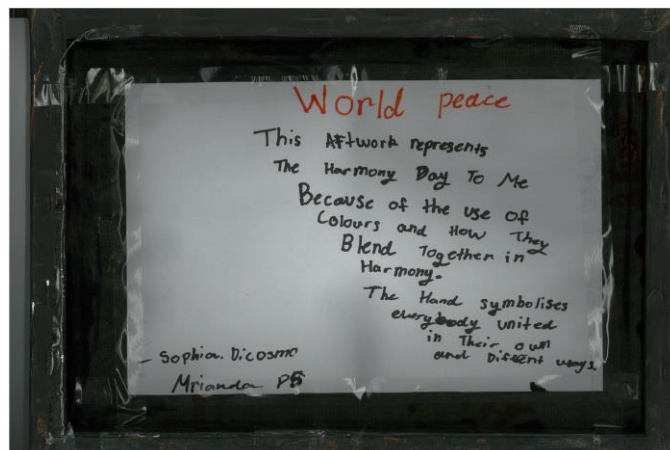 World peace
This Artwork represents
The Harmony Day To Me
Because of the use of
Colours and How They
Blend Together in
Harmony.
The Hand symbolises
everybody united
in Their own
and Diffent ways.
- Sophia. Dicosmo
Mrianda P5